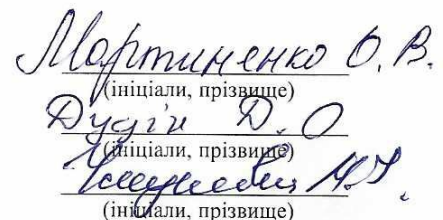 Мартиненко О. В.
(ініціали, прізвище)
Дудін Д. О
(ініціали, прізвище)
(ініціали, прізвище)